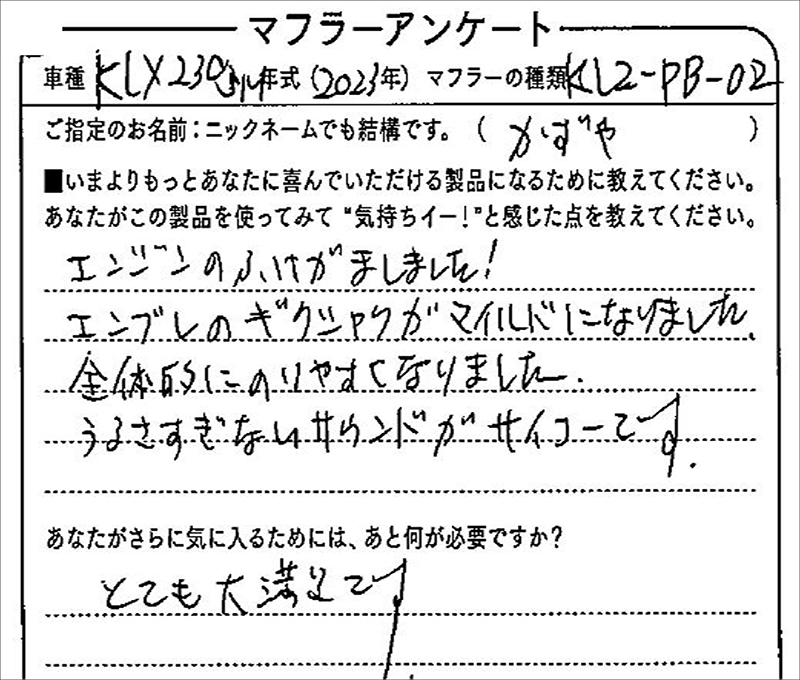 マフラーアンケート
車種 KLX230 年式 (2023年) マフラーの種類 KL2-PB-02
ご指定のお名前:ニックネームでも結構です。( かずや )
■いまよりもっとあなたに喜んでいただける製品になるために教えてください。
あなたがこの製品を使ってみて“気持ちイー!”と感じた点を教えてください。
エンジンのふけがましました!
エンブレのギクシャクがマイルドになりました.
全体的にのりやすくなりました.
うるさすぎないサウンドがサイコーです.
あなたがさらに気に入るためには、あと何が必要ですか?
とても大満足です.